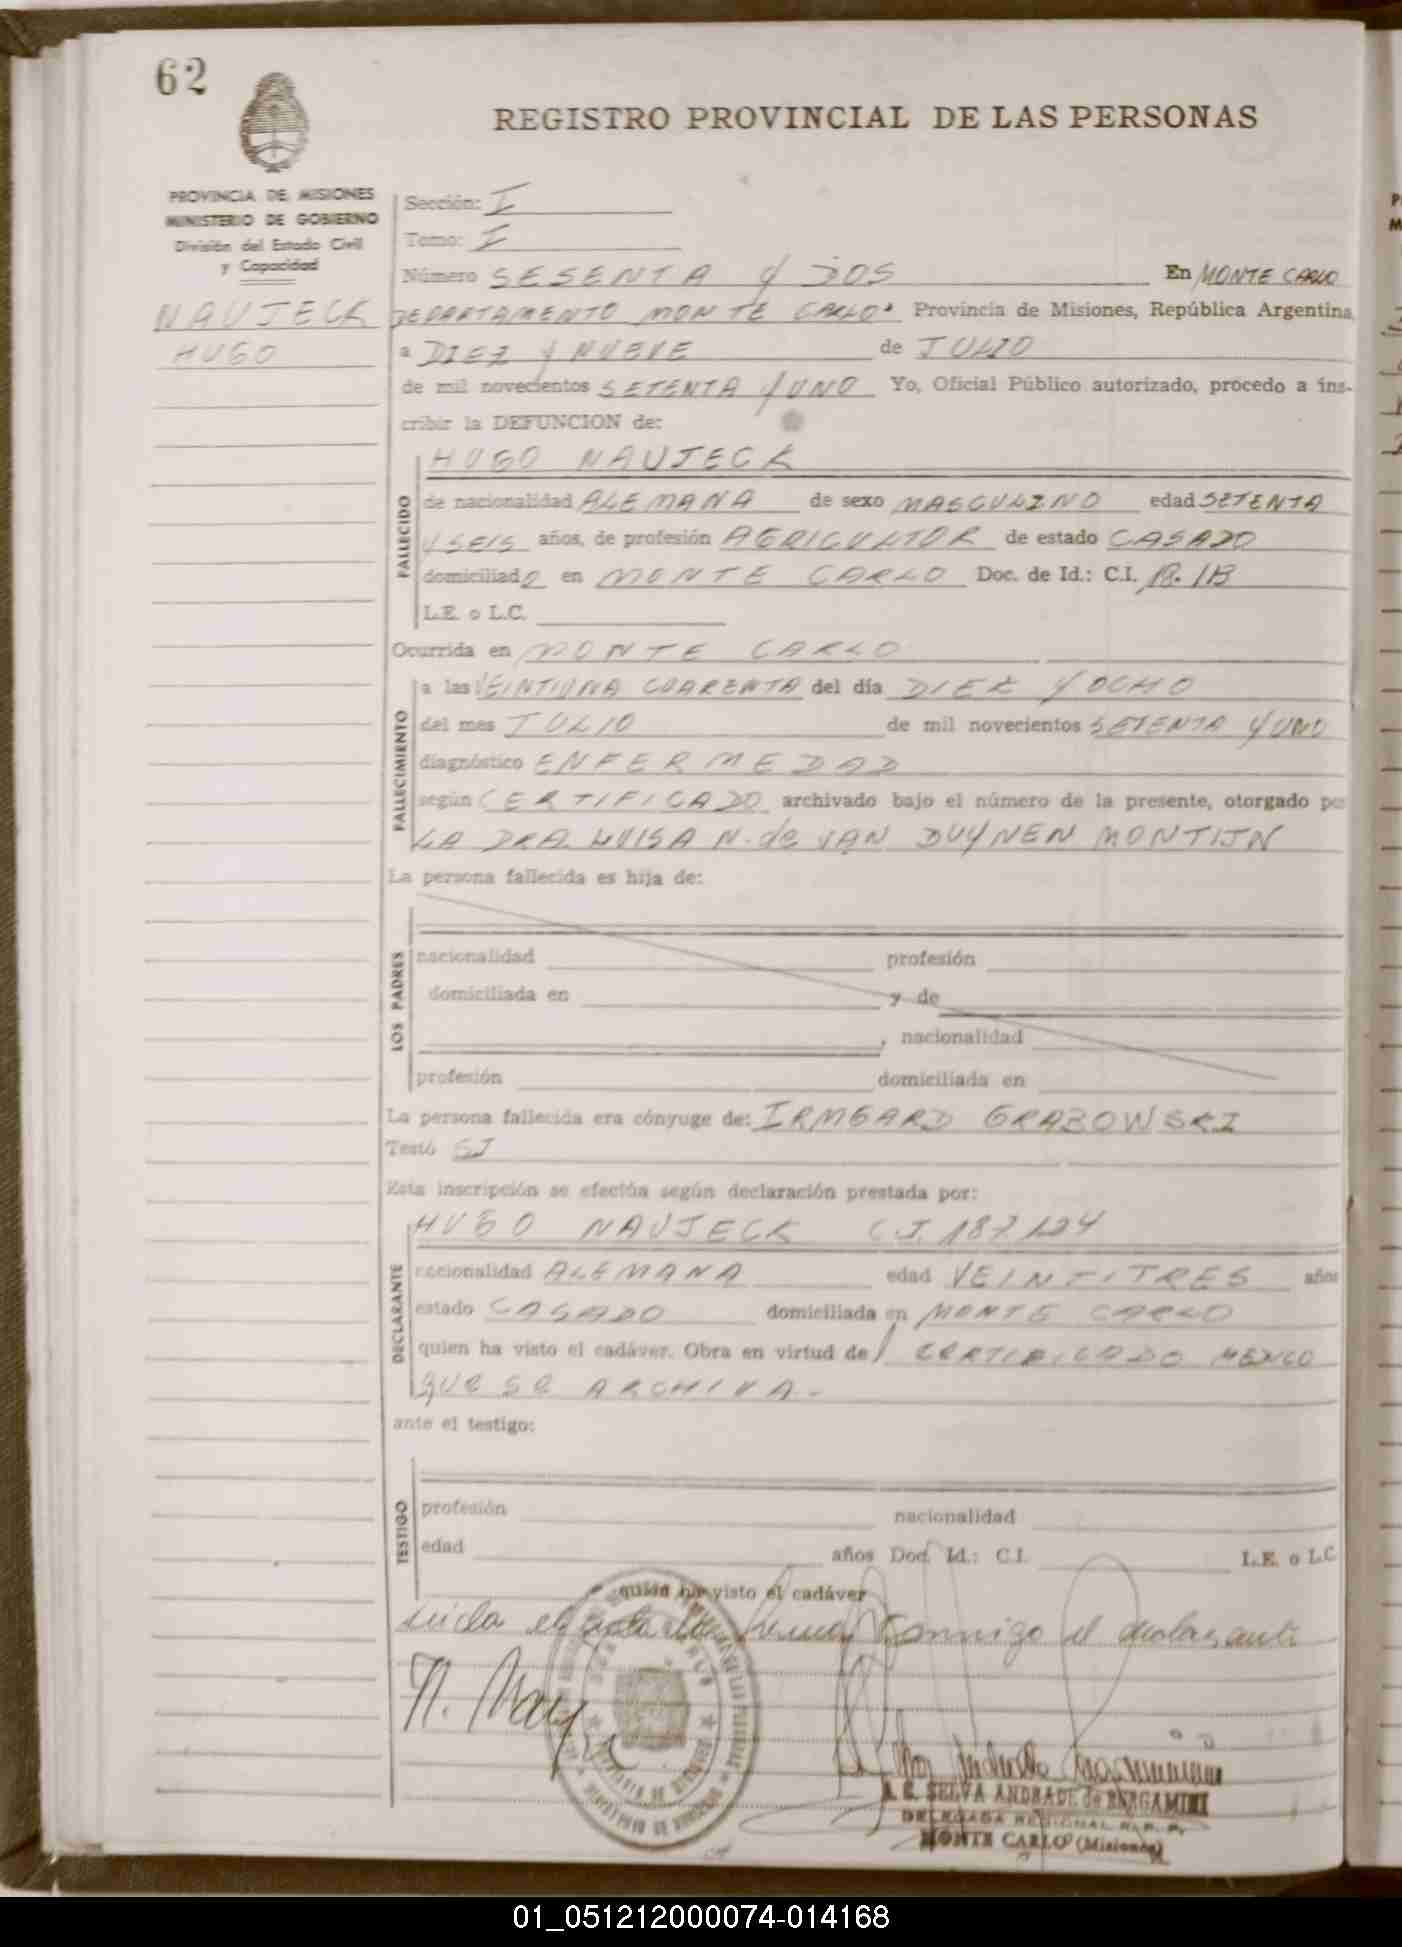 62
REGISTRO PROVINCIAL DE LAS PERSONAS
PROVINCIA DE MISIONES
MINISTERIO DE GOBIERNO
División del Estado Civil
y Capacidad
NAUJECK
HUGO
Sección: I
Tomo: I
Número SESENTA Y DOS En MONTE CARLO
DEPARTAMENTO MONTE CARLO. Provincia de Misiones, República Argentina,
a DIEZ Y NUEVE de JULIO
de mil novecientos SETENTA Y UNO Yo, Oficial Público autorizado, procedo a ins-
cribir la DEFUNCION de:
FALLECIDO
HUGO NAUJECK
de nacionalidad ALEMANA de sexo MASCULINO edad SETENTA
Y SEIS años, de profesión AGRICULTOR de estado CASADO
domiciliado en MONTE CARLO Doc. de Id.: C.I.
L.E. o L.C.
Ocurrida en MONTE CARLO
FALLECIMIENTO
a las VEINTIUNA CUARENTA del día DIEZ Y OCHO
del mes JULIO de mil novecientos SETENTA Y UNO
diagnóstico ENFERMEDAD
según CERTIFICADO archivado bajo el número de la presente, otorgado por
LA DRA. LUISA N. de VAN DUYNEN MONTIJN
La persona fallecida es hija de:
LOS PADRES
nacionalidad profesión
domiciliada en y de
, nacionalidad
profesión domiciliada en
La persona fallecida era cónyuge de: IRMGARD GRABOWSKI
Testó SI
Esta inscripción se efectúa según declaración prestada por:
DECLARANTE
HUGO NAUJECK C.I. 187.124
nacionalidad ALEMANA edad VEINTITRES años
estado CASADO domiciliada en MONTE CARLO
quien ha visto el cadáver. Obra en virtud de CERTIFICADO MEDICO
QUE SE ARCHIVA.-
ante el testigo:
TESTIGO
profesión nacionalidad
edad años Doc. Id.: C.I. L.E. o L.C.
quien ha visto el cadáver
Leida el acta la firma conmigo el declarante
N. SELVA ANDRADE de BERGAMINI
DELEGADA REGIONAL R. P. P.
MONTE CARLO (Misiones)
01_051212000074-014168